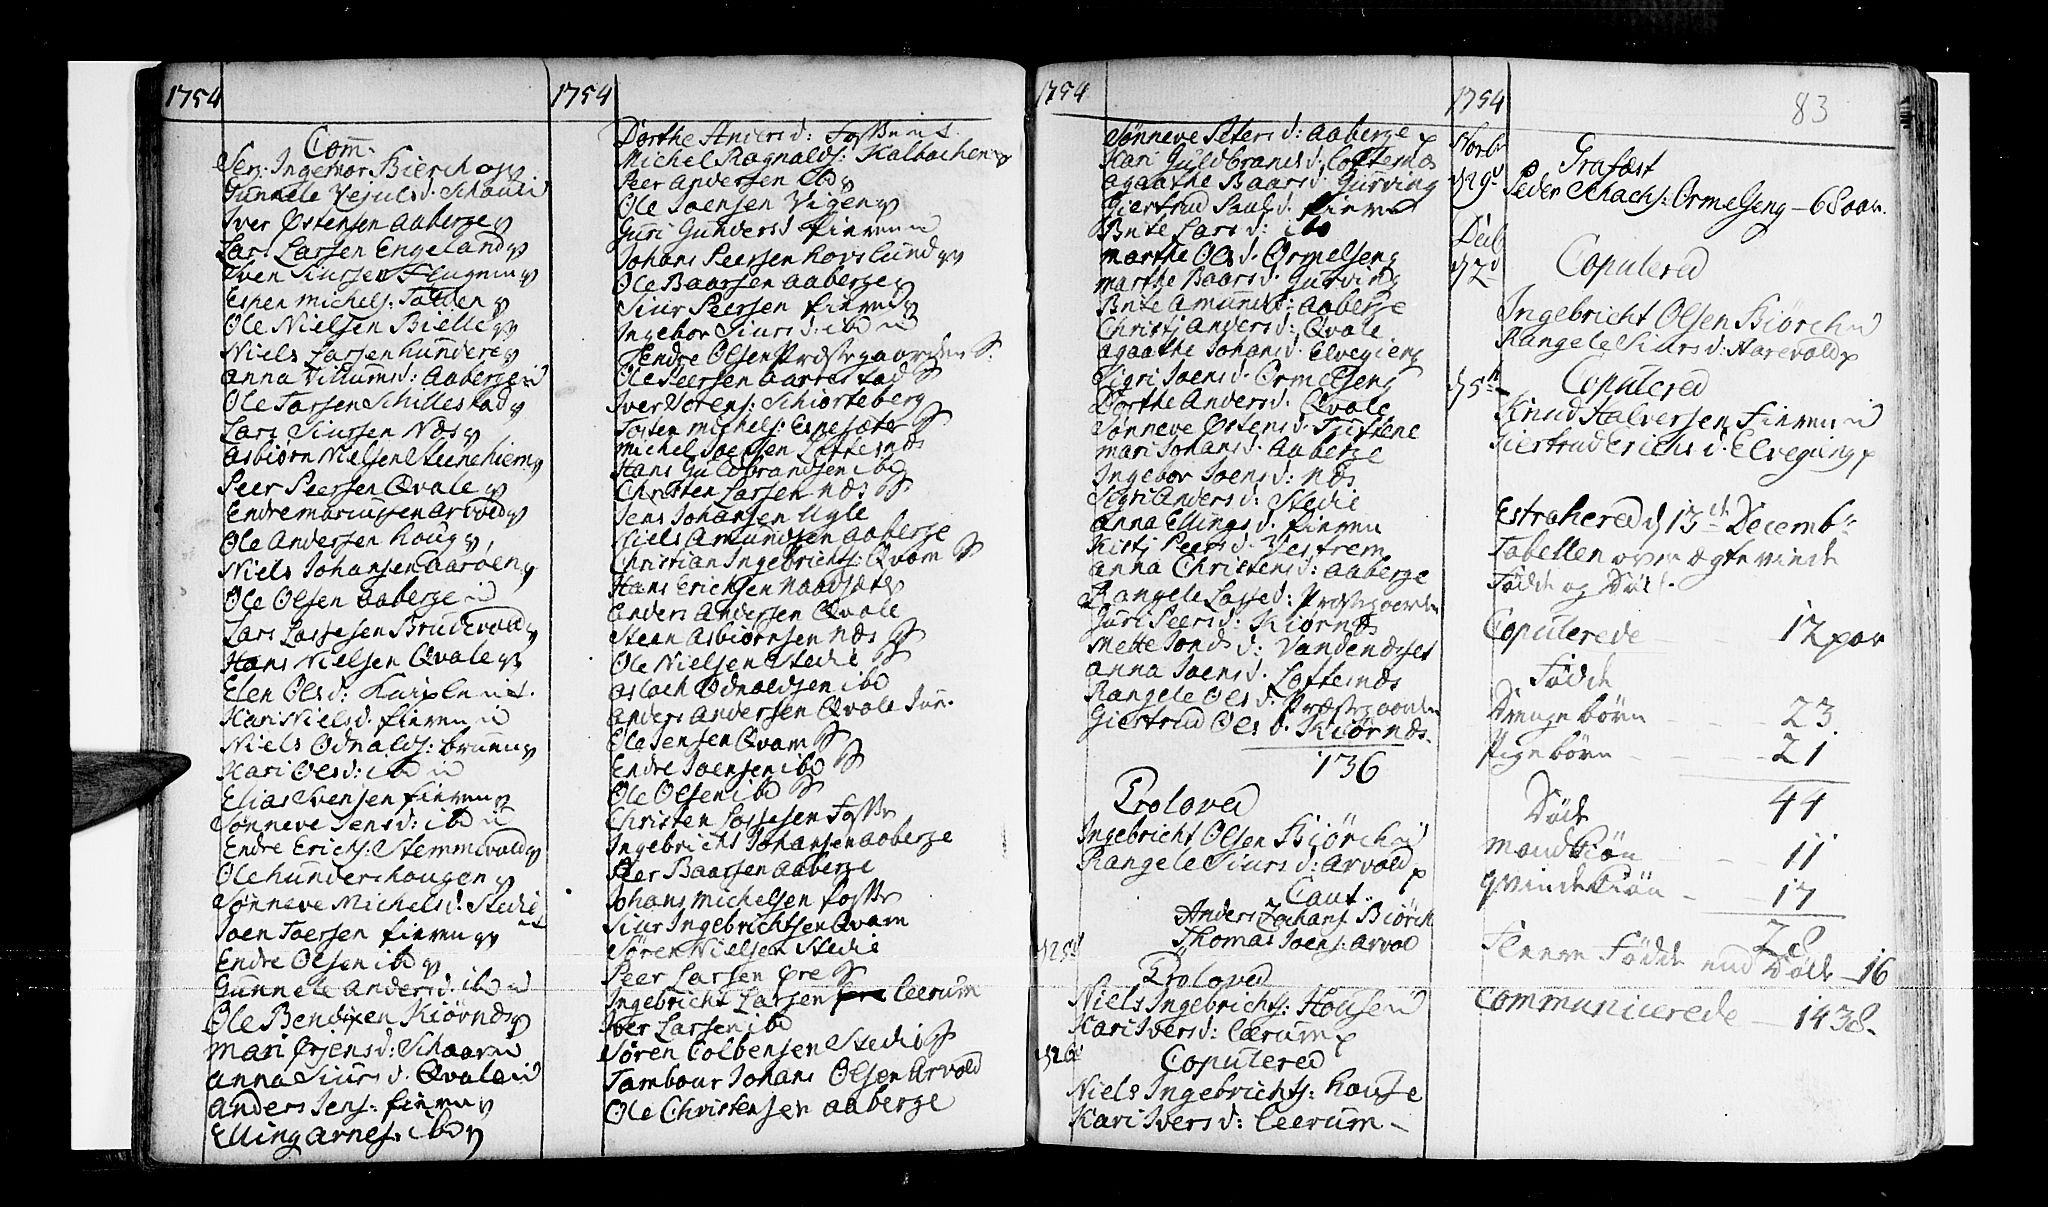 1754
Com̄.
Serj: Ingemor Biørch
Gunnele Vejuls d:
Iver Østensen Aaberge
Lars Larsen Engeland
Sven Siursen
Espen Michels:
Ole Nielsen Bielle
Niels Larsen Hundere
Anna Villums d: Aaberge
Ole Tarsen Schillestad
Lars Siursen Næs
Asbiørn Nielsen Steenehiem
Peer Peersen Qvale
Endre Arvold
Ole Andersen Houg
Niels Johansen Aarøen
Ole Olsen Aaberge
Lars Lassesen Brudevold
Hans Nielsen Qvale
Elen Ols d:
Kari Niels d. Fieren
Niels Odnalds: Bruen
Kari Ols d: ibd
Elias Svensen Fieren
Sønneve Jens d: ibd
Endre Erichs: Stemmevold
Ole Hunderhougen
Sønneve Michels d: Stedie
Joen Joersen Fieren
Endre Olsen ibd
Gunnele Anders d: ibd
Ole Bendixen Kiørnæs
Mari Ørjens d: Schaar
Anna Siurs d. Qvale
Anders Jens: Fieren
Elling Arnes: ibd
1754
Dorthe Anders d: Fosse
Michel Ragnalds: Kalbachen
Peer Andersen ibd
Ole Joensen Vigen
Guri Gunders d Fieren
Johans Peersen Hovslund
Ole Baarsen Aaberge
Siur Peersen Fieren
Ingebor Siurs d: ibd
Endre Olsen Præstegaarden
Ole Peersen Aarrestad
Iver Sørens: Schiørteberg
Tosten Michels: Esnesæter
Michel Joensen Loftesnæs
Hans Guldbrandsen ibd
Christen Larsen Næs
Jens Johansen Ugle
Niels Amundsen Aaberge
Christian Ingebrichts: Qvam
Hans Erichsen Nabdsæter
Anders Andersen Qvale
Steen Asbiørnsen Næs
Ole Nielsen Stedie
Aslach Odnaldsen ibd
Anders Andersen Qvale Jun.
Ole Jensen Qvam
Endre Joensen ibd
Ole Olsen ibd
Christen Lassesen Fosse
Ingebricht Johansen Aaberge
Peer Baarsen Aaberge
Johans Michelsen Fosse
Siur Ingebrichtsen Qvam
Søren Nielsen Stedie
Peer Larsen Øre
Ingebricht Larsen Leerum
Iver Larsen ibd
Søren Colbensen Stedie
Tambour Johans Olsen Arvold
Ole Christensen Aaberge
1754
Sønneve Peters d: Aaberge
Kari Guldbrands d. Loftesnæs
Agaathe Baars d. Gurving
Giertrud Pauls d. Fieren
Brite Lars d: ibd
Marthe Ols d. Ormelseng
Marthe Baars d. Gurving
Brite Amunds d: Aaberge
Christj Anders d: Qvale
Agaathe Johans d. Elvegieng
Sigri Joens d. Ormelseng
Dorthe Anders d. Qvale
Sønneve Østens d. Tuftene
Mari Johans d. Aaberge
Ingebor Joens d: Næs
Sigri Anders d: Stedie
Anna Ellings d. Fieren
Kistj Peers d: Vestrem
Anna Christens d: Aaberge
Rangele Lasse d: Præstegaarden
Guri Peers d: Kiørnæs
Mette Jons d: Vandendset
Anna Joens d. Loftesnæs
Rangele Ols d. Præstgaarden
Giertrud Ols d. Kiørnæs.
136
Troloved
Ingebricht Olsen Kiørch
Rangele Siurs d: Arvold
Caut:
Anders Zachars Biørch
Thomas Joens: Arvold
d 25d
Troloved
Niels Ingebrichts: Housen
Kari Ivers d: Leerum
d 26d
Copulered
Niels Ingebrichts: House
Kari Ivers d: Leerum
1754
83
Novbr
d 29d
Grafæst
Peder Schachs: Ormelseng – 68 aar.
Decb
d 2d
Copulered
Ingebricht Olsen Biørch
Rangele Siurs d: Harevold
d 5t
Copulered
Knud Halversen Fieren
Giertrud Erichs d. Elveging
Extrahered d 13de Decembr
Tabellen over ægteviede
Fødde og Døde.
Copulerede 12 par
Fødde
Drengebørn 23
Pigebørn 21
44
Døde
Mandkiøn 11
Qvindekiøn 17
28
Fleere Fødde end Døde – 16
Communicerede 1438.